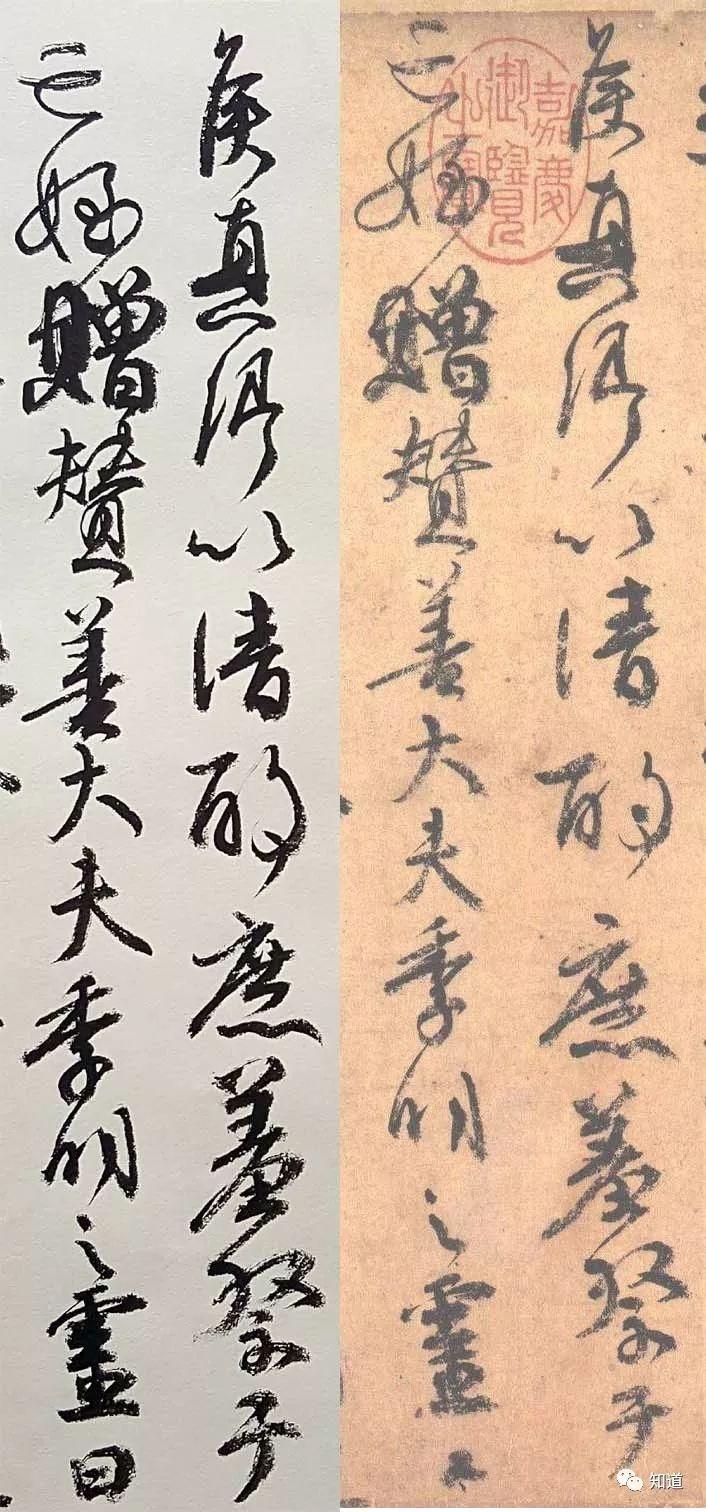 侯真卿以清酌庶羞祭于
亡姪贈贊善大夫季明之靈曰
嘉慶御覽之寶
侯真卿以清酌庶羞祭于
亡姪贈贊善大夫季明之靈曰
知道